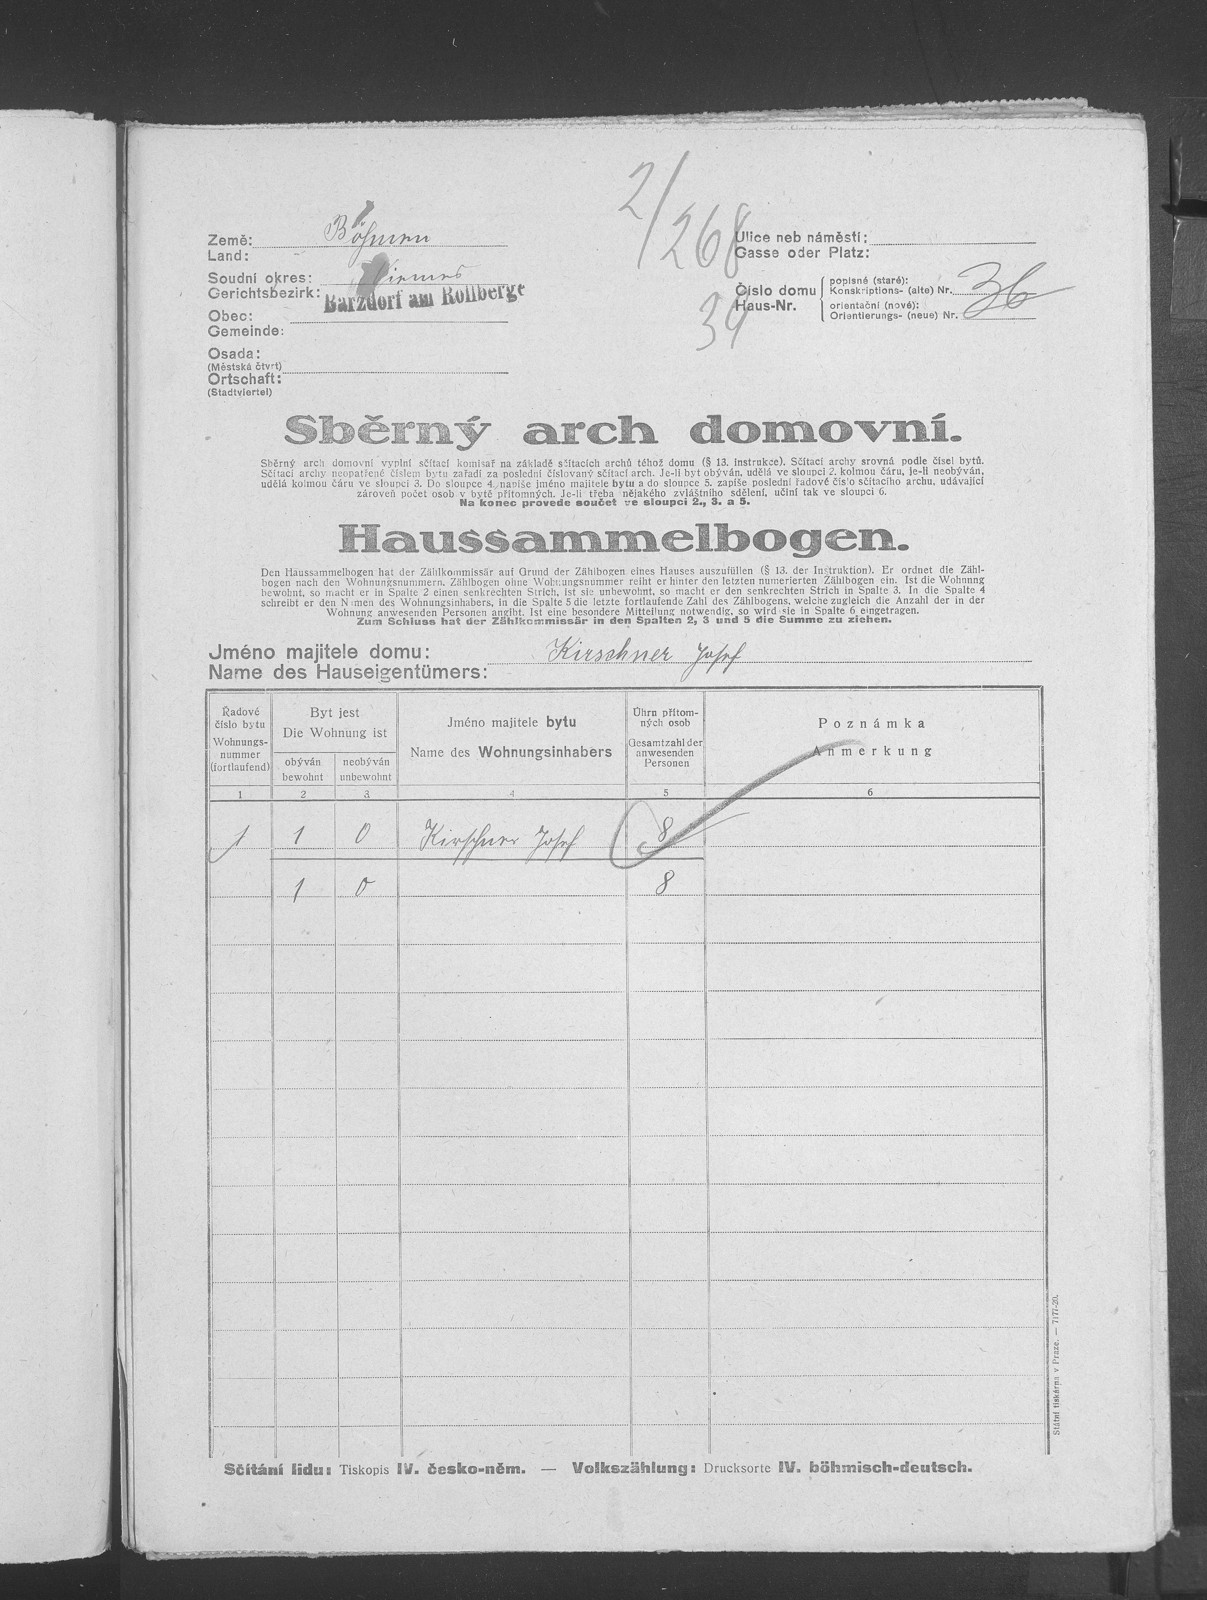 2/268
34
Země: Böhmen
Land:
Soudní okres: Niemes
Gerichtsbezirk:
Barzdorf am Rollberge
Obec:
Gemeinde:
Osada:
(Městská čtvrt)
Ortschaft:
(Stadtviertel)
Ulice neb náměstí:
Gasse oder Platz:
Číslo domu
Haus-Nr.
popisné (staré):
Konskriptions- (alte) Nr. 36
orientační (nové):
Orientierungs- (neue) Nr.
Sběrný arch domovní.
Sběrný arch domovní vyplní sčítací komisař na základě sčítacích archů téhož domu (§ 13. instrukce). Sčítací archy srovná podle čísel bytů.
Sčítací archy neopatřené číslem bytu zařadí za poslední číslovaný sčítací arch. Je-li byt obýván, udělá ve sloupci 2. kolmou čáru, je-li neobýván,
udělá kolmou čáru ve sloupci 3. Do sloupce 4. napíše jméno majitele bytu a do sloupce 5. zapíše poslední řadové číslo sčítacího archu, udávající
zároveň počet osob v bytě přítomných. Je-li třeba nějakého zvláštního sdělení, učiní tak ve sloupci 6.
Na konec provede součet ve sloupci 2., 3. a 5.
Haussammelbogen.
Den Haussammelbogen hat der Zählkommissär auf Grund der Zählbogen eines Hauses auszufüllen (§ 13. der Instruktion). Er ordnet die Zähl-
bogen nach den Wohnungsnummern. Zählbogen ohne Wohnungsnummer reiht er hinter den letzten numerierten Zählbogen ein. Ist die Wohnung
bewohnt, so macht er in Spalte 2 einen senkrechten Strich, ist sie unbewohnt, so macht er den senkrechten Strich in Spalte 3. In die Spalte 4
schreibt er den Namen des Wohnungsinhabers, in die Spalte 5 die letzte fortlaufende Zahl des Zählbogens, welche zugleich die Anzahl der in der
Wohnung anwesenden Personen angibt. Ist eine besondere Mitteilung notwendig, so wird sie in Spalte 6 eingetragen.
Zum Schluss hat der Zählkommissär in den Spalten 2, 3 und 5 die Summe zu ziehen.
Jméno majitele domu: Kirschner Josef
Name des Hauseigentümers:
Řadové
číslo bytu
Wohnungs-
nummer
(fortlaufend)
Byt jest
Die Wohnung ist
obýván
bewohnt
neobýván
unbewohnt
Jméno majitele bytu
Name des Wohnungsinhabers
Úhrn přítom-
ných osob
Gesamtzahl der
anwesenden
Personen
Poznámka
Anmerkung
1 2 3 4 5 6
1 1 0 Kirschner Josef 8
1 0 8
Státní tiskárna v Praze. — 7177-20.
Sčítání lidu: Tiskopis IV. česko-něm. — Volkszählung: Drucksorte IV. böhmisch-deutsch.